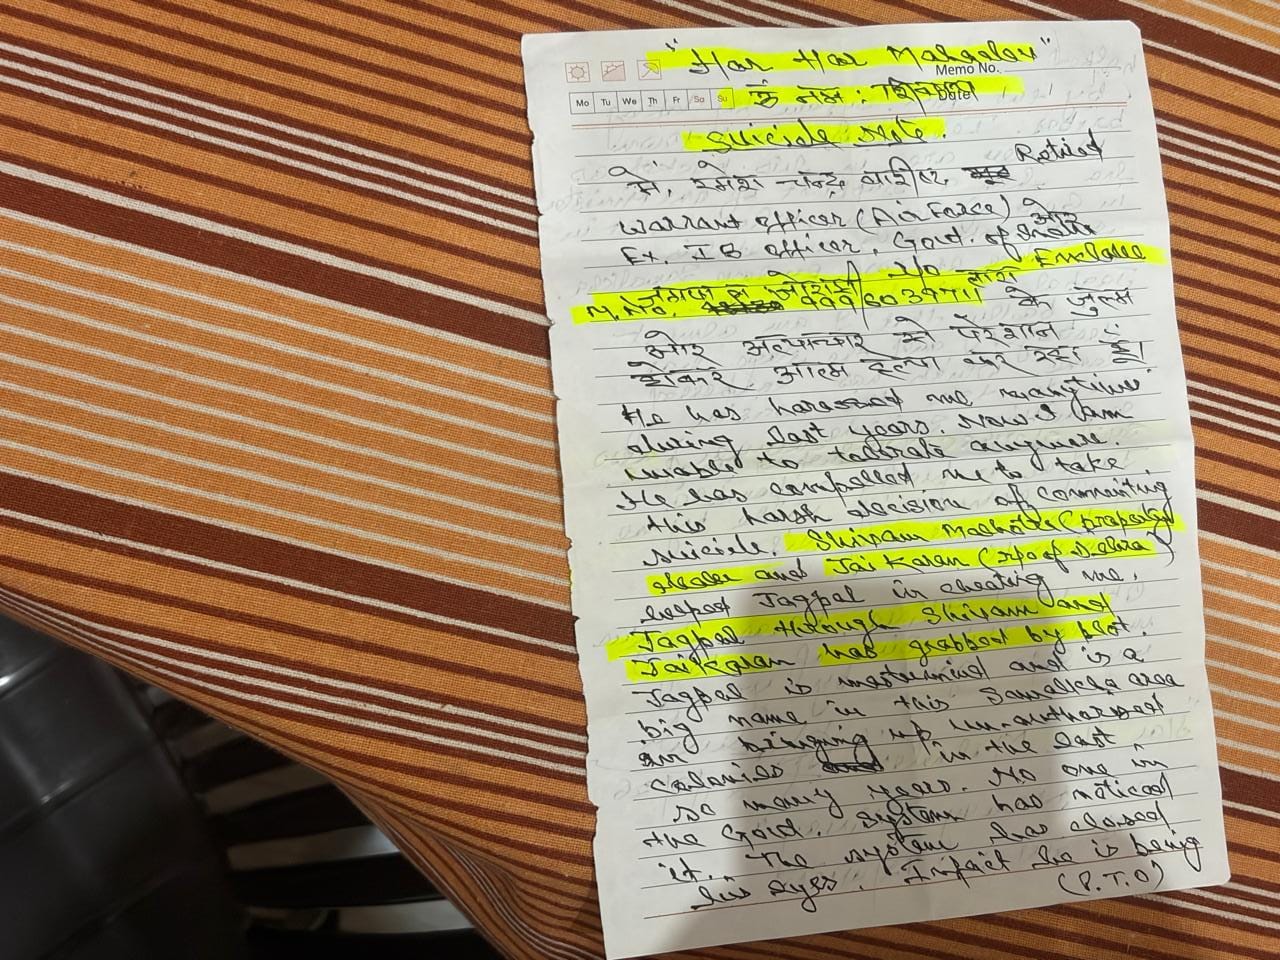 "Har Har Mahadev"
Memo No.
Mo Tu We Th Fr Sa Su
Date
ॐ नमः शिवाय
Suicide Note.
मैं, रमेश चन्द्र Retired
Warrant officer (Air Force) और
Ex. IB officer, Govt. of India
Enclave
M.No. के जुल्म
और अत्याचार से परेशान
होकर आत्म हत्या कर रहा हूं।
He has harassed me many times
during last years. Now I am
unable to tolerate anymore.
He has compelled me to take
this harsh decision of commiting
suicide. Shivam Malhotra (property
dealer and Jai Karan
helped Jagpal in cheating me.
Jagpal through Shivam and
Jai Karan has grabbed by plot.
Jagpal is mastermind and is a
big name in this area
in bringing up un-authorised
colonies in the last
so many years. No one in
the Govt. system has noticed
it. The system has closed
his eyes. Infact he is being
(P.T.O)